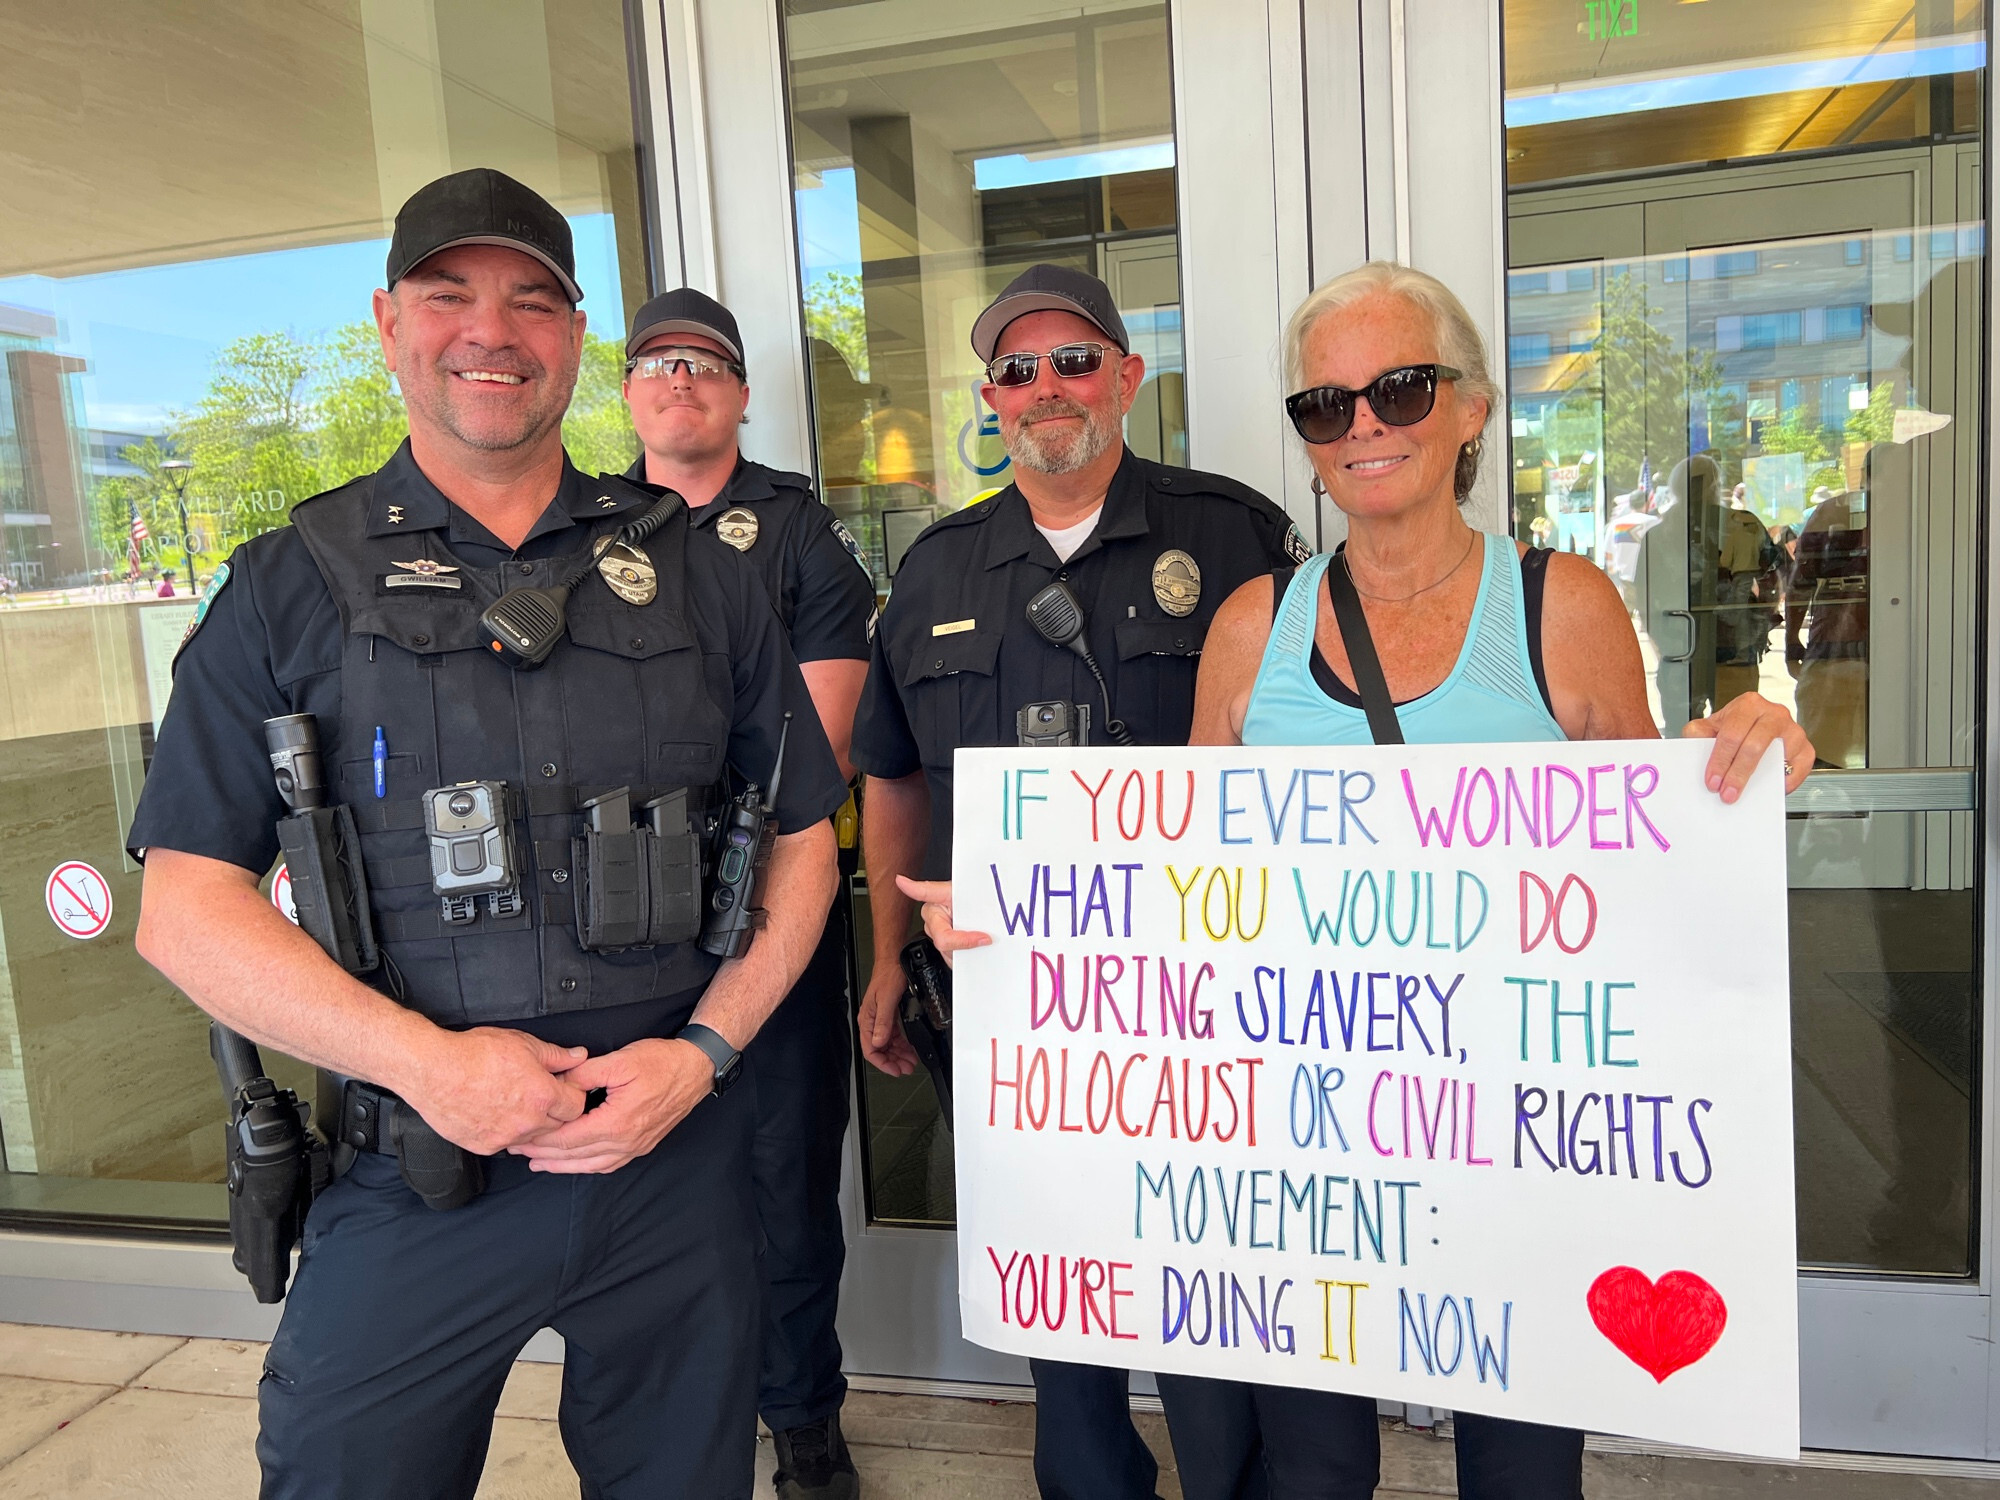 EXIT
NSLPD
J WILLARD
MARRIOTT
GWILLIAM
UTAH
MOTOROLA
IF YOU EVER WONDER
WHAT YOU WOULD DO
DURING SLAVERY, THE
HOLOCAUST OR CIVIL RIGHTS
MOVEMENT:
YOU'RE DOING IT NOW